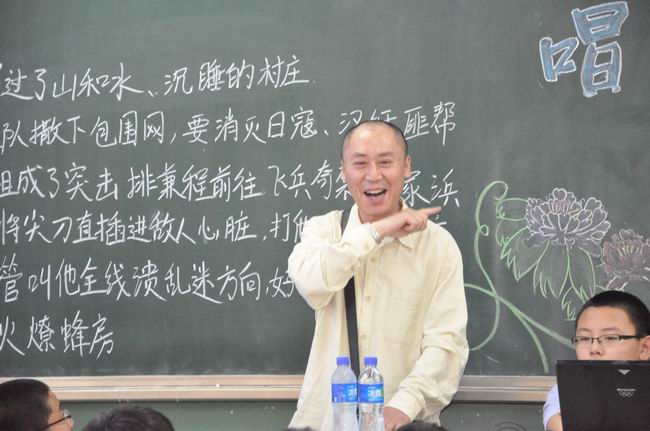 唱
过了山和水、沉睡的村庄
队撒下包围网,要消灭日寇、汉奸匪帮
组成了突击排兼程前往飞兵奇袭 家浜
将尖刀直插进敌人心脏,打他
管叫他全线溃乱迷方向,好
火燎蜂房